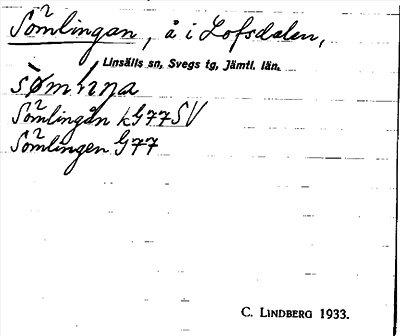 Sömlingan, å i Lofsdalen,
Linsälls sn, Svegs tg, Jämtl. län.
Sömlingån kG77SV
Sömlingen G77
C. LINDBERG 1933.